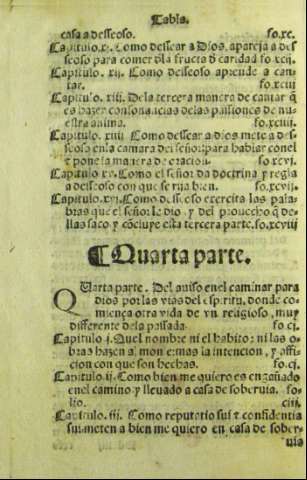 Tabla.
casa a desseoso. fo.xc.
Capitulo.xj. Como dessear a Dios, apareja a des
seoso para comer dla fructa d̄ caridad fo.xcij.
Capitulo. xij. Como desseoso aprende a can
tar. fo.xciii
Capitulo. xiii. De la tercera manera de cantar q̄
es hazer consonancias de las passiones de nu-
estra anima. fo.xciiii.
Capitulo. xiiii Como dessear a dios mete a des
seoso en la camara del señor: para hablar con el
t pone la manera de oracion. fo.xcvi.
Capitulo xv. Como el señor da doctrina y regla
a desseoso con que se rija bien. fo.xcvij.
Capitulo.xvj. Como desseoso exercita las pala-
bras que el señor le dio . y del prouecho q̄ de-
llas saco y cōcluye esta tercera parte. fo.xcviii
Quarta parte.
QUarta parte. Del auiso en el caminar para
dios por las vias del espiritu, donde co-
miença otra vida de vn religioso, muy
differente de la passada. fo cj.
Capitulo j. Quel nombre ni el habito: ni las o
bras hazen al mon e: mas la intencion, y affi-
cion con que son hechas. fo.cj.
Capitulo ij. Como bien me quiero es engañado
en el camino y lleuado a casa de soberuia. fo-
lio. ciij.
Capitulo. iii. Como reputatio sui t confidentia
sui: meten a bien me quiero en casa de sober-
uia